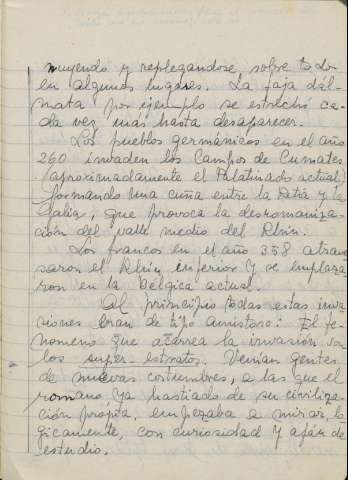 nuyendo y replegandose sobre todo
en algunos lugares. La faja dál-
mata por ejemplo se estrechó ca-
da vez más hasta desaparecer.
Los pueblos germánicos en el año
260 invaden los Campos de Cumates
(aproximadamente el Palatinado actual)
formando una cuña entre la Retia y la
Galia, que provoca la desromaniza-
ción del valle medio del Rhin.
Los francos en el año 358 atrave
saron el Rhin inferior y se emplaza
ron en la Bélgica actual.
Al principio todas estas inva
siones eran de tipo amistoso: El fe-
nomeno que acarrea la invasión
los super-estratos. Venian gentes
de nuevas costumbres, a las que el
romano, ya hastiado de su civiliza-
ción propia, empezaba a mirar, lo
gicamente, con curiosidad y afán de
estudio.